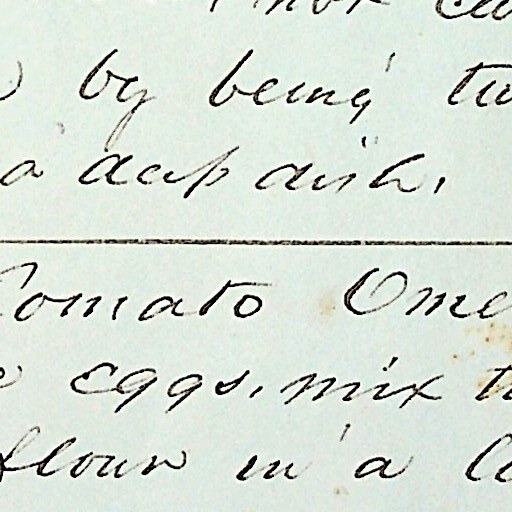 by being
a deep dish.
Tomato Ome
eggs, mix
flour in a